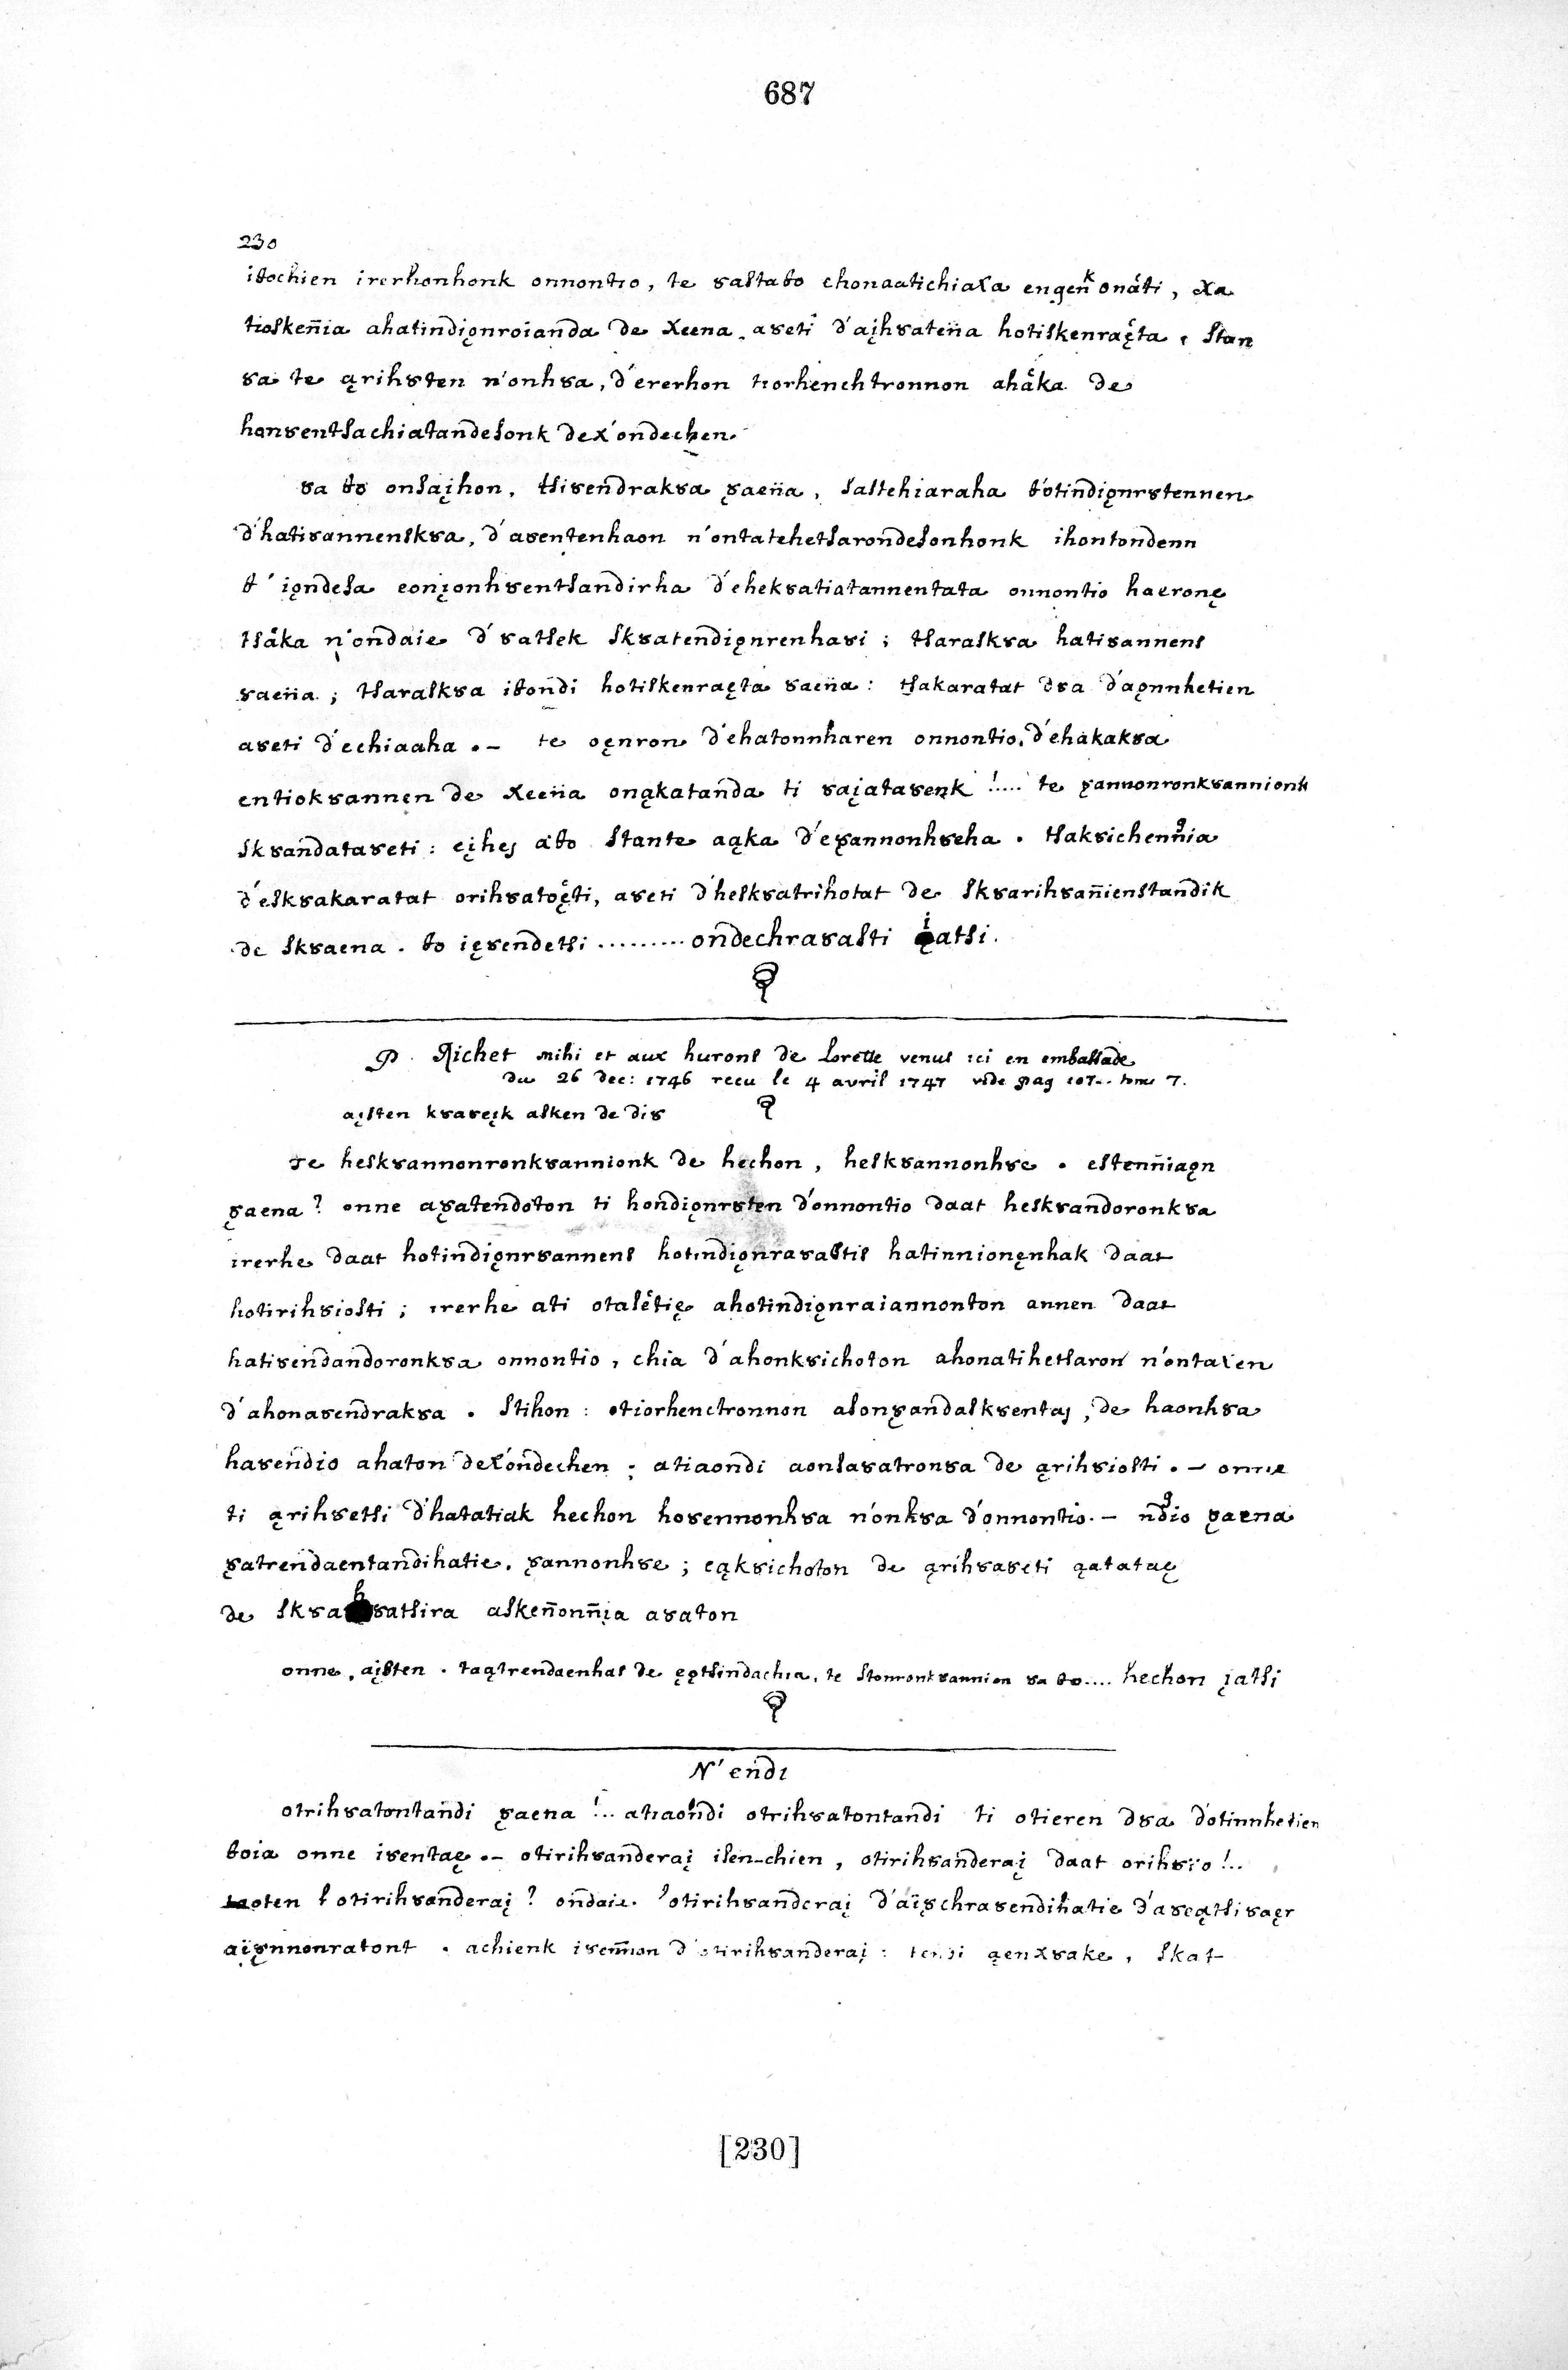 687
230
iθochien irerhonhonk onnontio, te ȣastaθo chonaatichiaχa engen̄k onáti, χa
tioskeñia ahatindiǫnroian̄da de χeena. aȣeti d'aįhȣateña hotiskenraę́ta, stan
ȣa te ąrihȣten n'onhȣa, d'ererhon tiorhenchtronnon ahäka de
honȣentsachiatan̄desonk deχ'on̄dechen.
ȣa θo onsaįhon, tsiȣen̄drakȣa ȣ̨aeña, sastehiaraha θ'otindiǫnrȣtennen
d'hatiȣannenskȣa, d'aȣentenhaon n'ontatehetsaron̄desonhonk ihontondenn
θ' iǫndesa eonįonhȣentsandirha d'ehekȣatiatannentata onnontio haeronę
tsäka n'on̄daie d'ȣatsek skȣatendiǫnrenhaȣi ; tsaraskȣa hatiȣannens
ȣaeña ; tsaraskȣa iθon̄di hotiskenraęta ȣaeña : tsakaratat dȣa d'aǫnnhetien
aȣeti d'echiaaha .– te oęnron d'ehatonnharen onnontio, d'ehakakȣa
entiokȣannen de χeeña onąkatan̄da ti ȣaįataȣenk !..... te ȣ̨annonronkȣannionk
skȣan̄dataȣeti : eįhej aθo stante aąka d'eȣ̨annonhȣeha . tsakȣichen̄nia
d'eskȣakaratat orihȣatoę́ti, aȣeti d'heskȣatrihotat de skȣarihȣan̄ienstan̄dik
de skȣaena . θo ięȣen̄detsi ......... on̄dechraȣasti įatsi.
P. Richet mihi et aux hurons de Lorette venus ici en embassade
du 26 dec: 1746 recu le 4 avril 1747 vide pag 107.. tome 7.
aįsten kȣaȣeįk asken de diȣ
te heskȣannonronkȣannionk de hechon, heskȣannonhȣe . esten̄niaǫn
ȣ̨aena ? onne aȣ̨aten̄doton ti hon̄diǫnrȣten d'onnontio daat heskȣan̄doronkȣa
irerhe daat hotin̄diǫnrȣannens hotindiǫnraȣastis hatinnionęnhak daat
hotirihȣiosti ; irerhe ati otasëtię ahotin̄diǫnraiannonton annen daat
hatiȣen̄dan̄doronkȣa onnontio, chia d'ahonkȣichoton ahonatihetsaron n'ontaχen
d'ahonaȣen̄drakȣa . stihon : otiorhenctronnon asonȣ̨an̄daskȣentaj, de haonhȣa
haȣen̄dio ahaton deχ'on̄dechen ; atiaon̄di aonsaȣatronȣa de ąrihȣiosti .– onne
ti ąrihȣetsi d'hatatiak hechon hoȣennonhȣa n'onkȣa d'onnontio.– n̄dio ȣ̨aena
ȣ̨atren̄daentan̄dihatie, ȣ̨annonhȣe ; eąkȣichoton de ąrihȣaȣeti ąatataę
de skȣahȣatsira asken̄on̄nįa aȣaton
onne, aįsten . taątrendaenhas de ęǫtsindachia, te stonronkȣannion ȣa θo.... hechon įatsi
N' en̄di
otrihȣatontan̄di ȣ̨aena !.. atiaon̄di otrihȣatontandi ti otieren dȣa d'otinnhetien
θoia onne iȣentaę .– otirihȣan̄deraį isen-chien, otirihȣan̄deraį daat orihȣio !..
oten t'otirihȣan̄deraį ? on̄daie 'otirihȣan̄deraį d'aïȣ̨chraȣen̄dihatie d'aȣeątsiȣaęr
aïȣ̨nnonratont . achienk iȣen̄non d'otirihȣanderaį : ten̄di ąenχȣake, skat
[230]